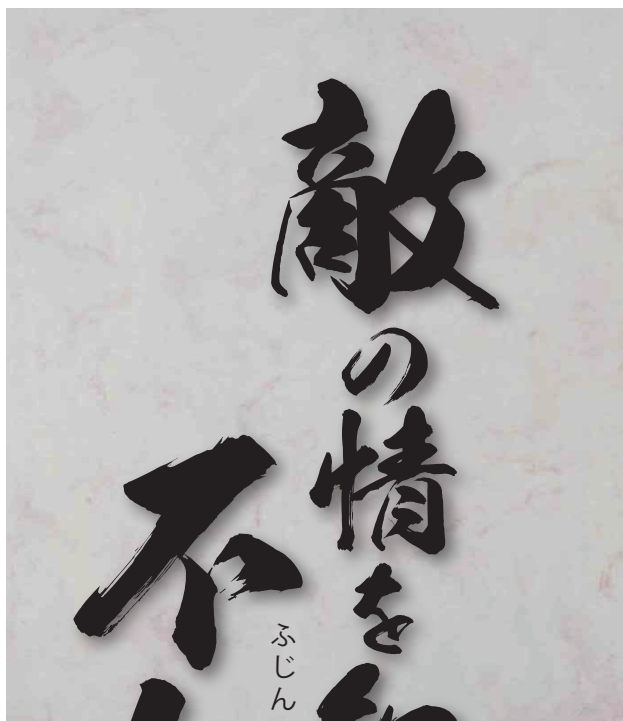 敵の情を
不
ふじん